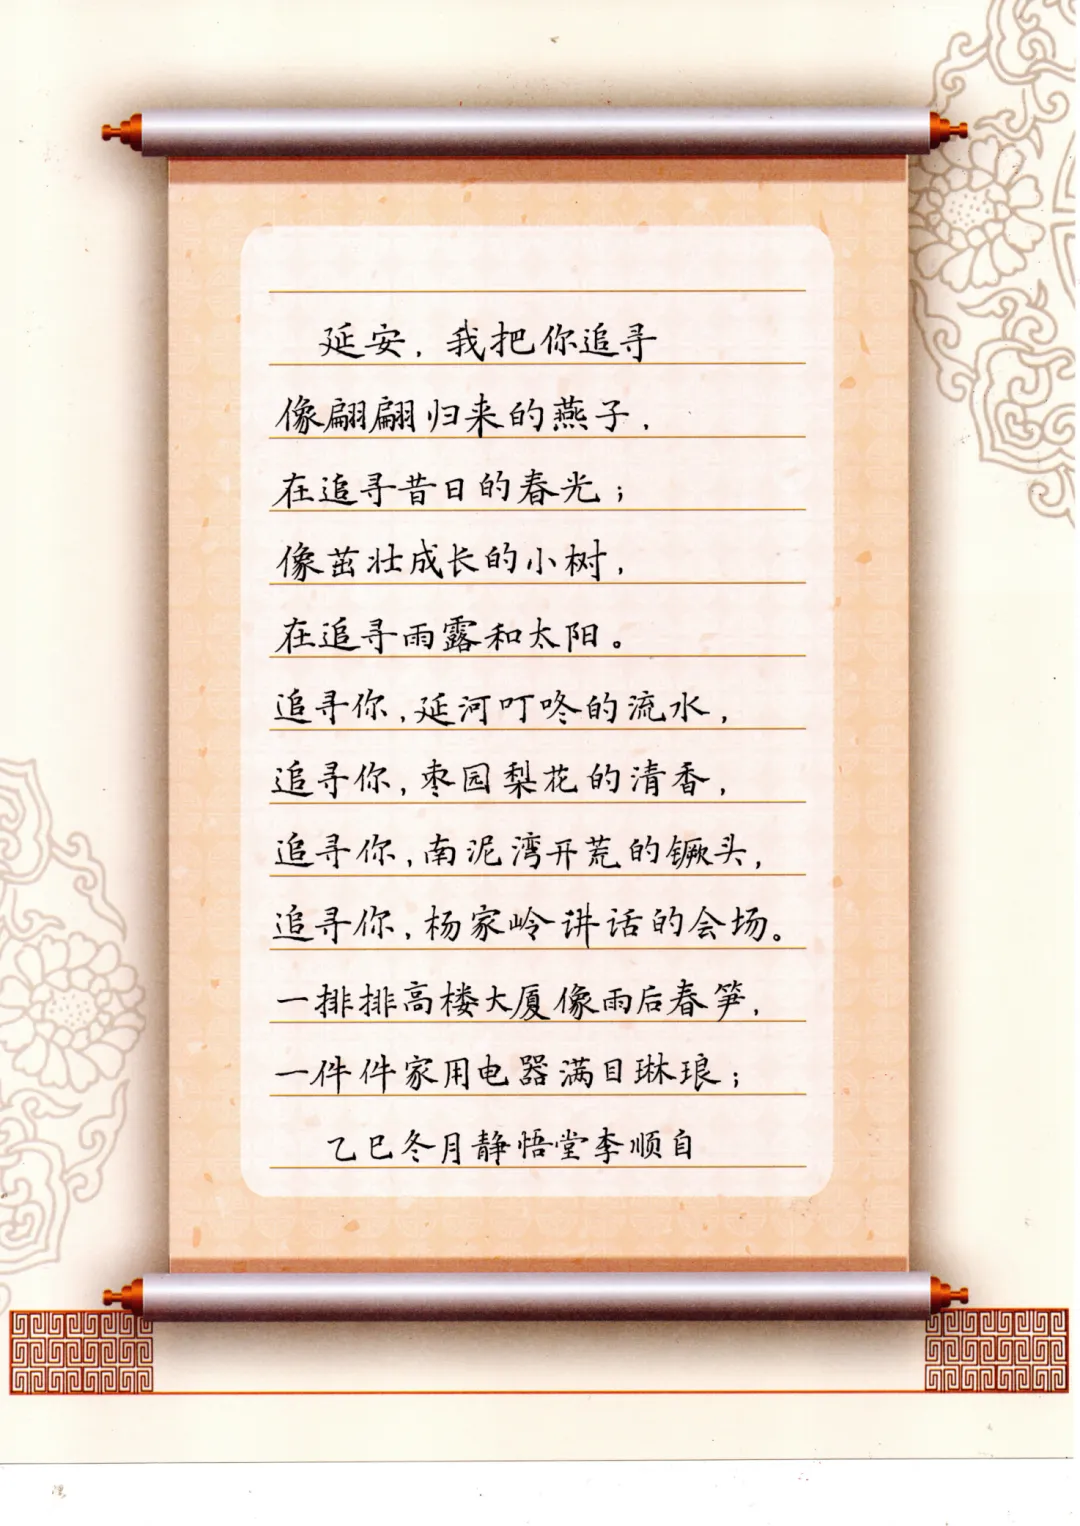 延安，我把你追寻
像翩翩归来的燕子，
在追寻昔日的春光；
像茁壮成长的小树，
在追寻雨露和太阳。
追寻你，延河叮咚的流水，
追寻你，枣园梨花的清香，
追寻你，南泥湾开荒的镢头，
追寻你，杨家岭讲话的会场。
一排排高楼大厦像雨后春笋，
一件件家用电器满目琳琅；
乙巳冬月静悟堂李顺自